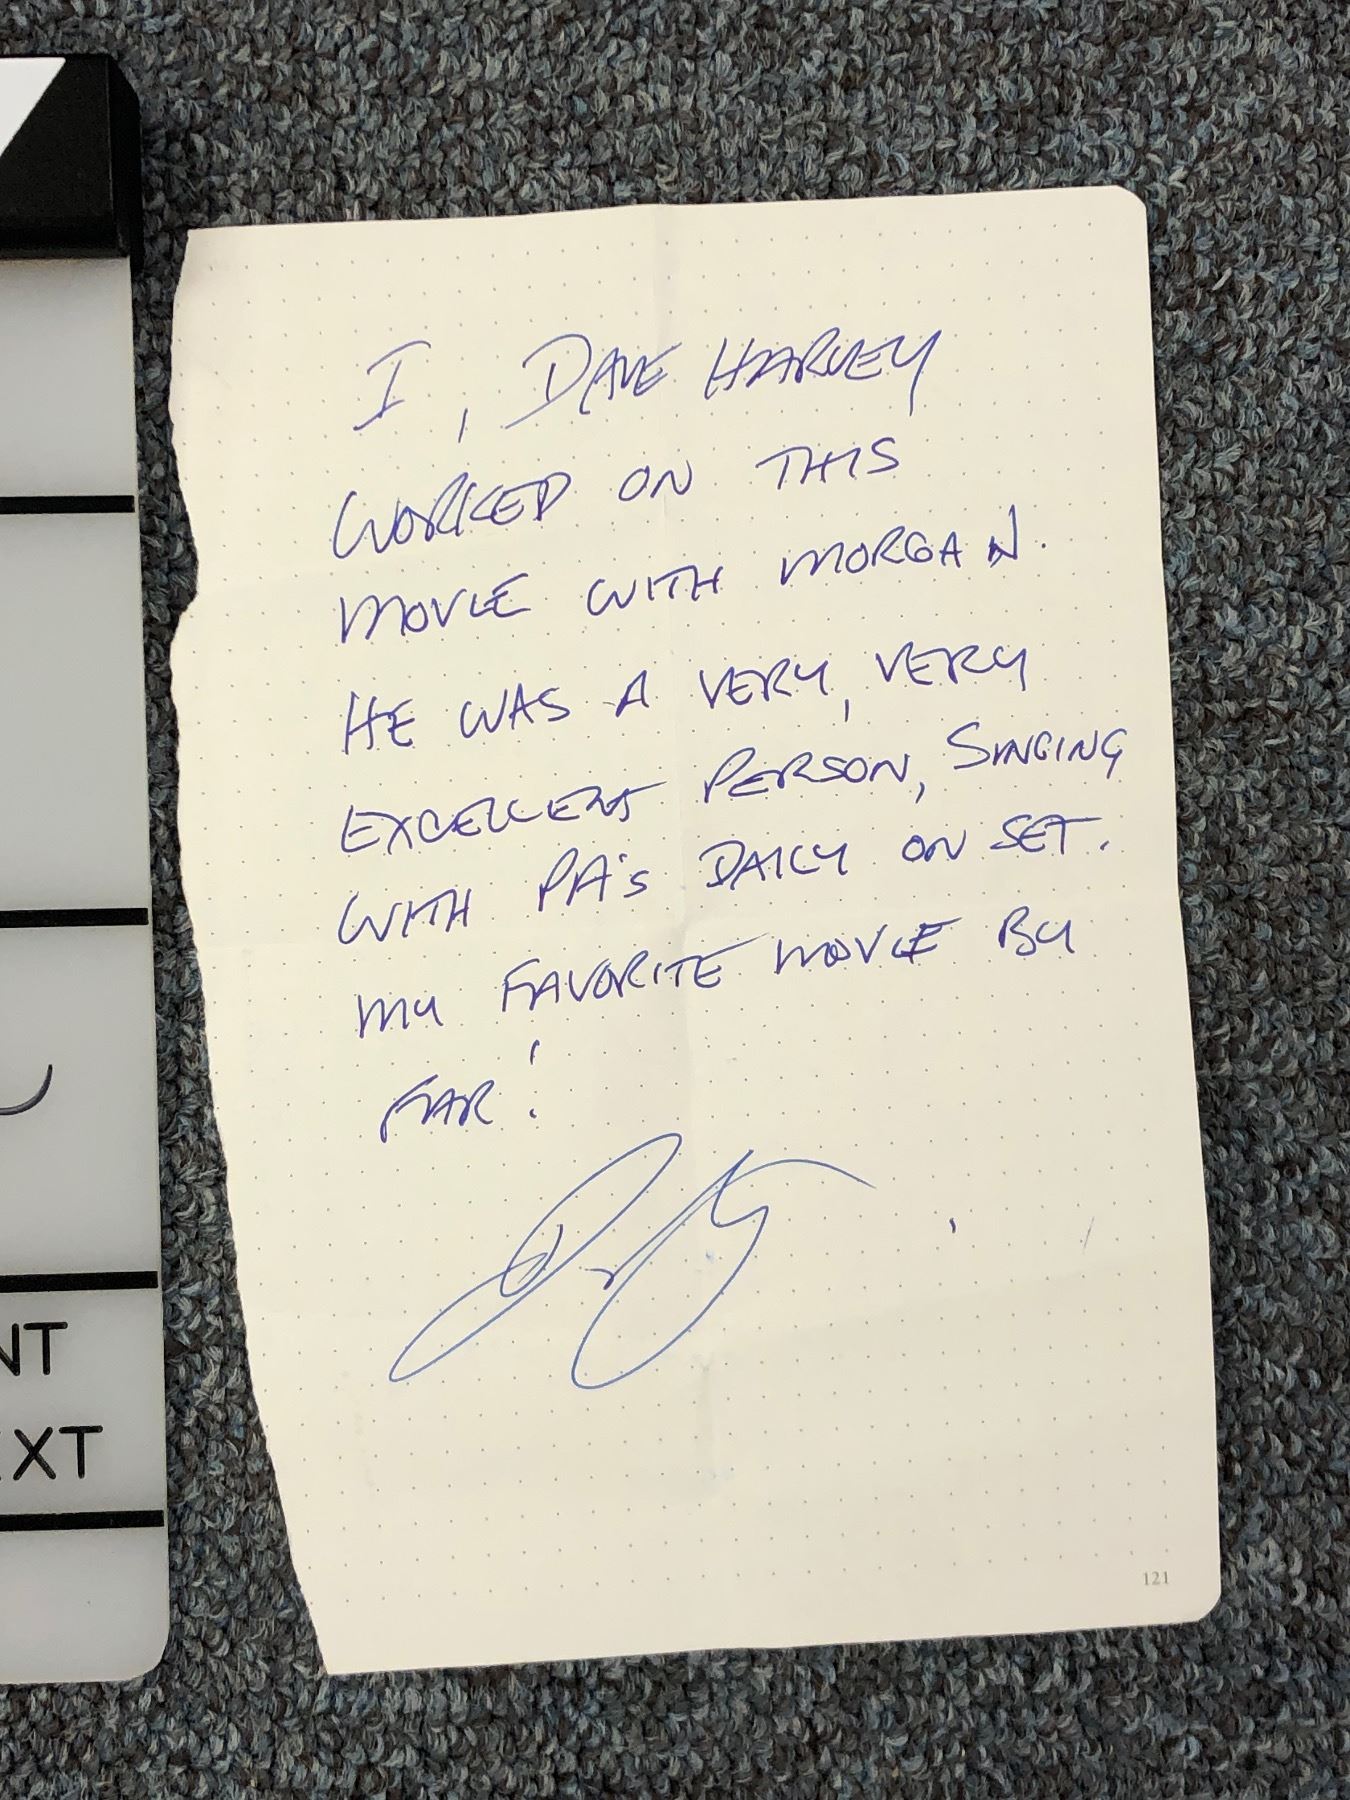 I, DAVE HARVEY
WORKED ON THIS
MOVIE WITH MORGAN.
HE WAS A VERY, VERY
EXCELLENT PERSON, SINGING
WITH PA's DAILY ON SET.
MY FAVORITE MOVIE BY
FAR!
NT
EXT
121